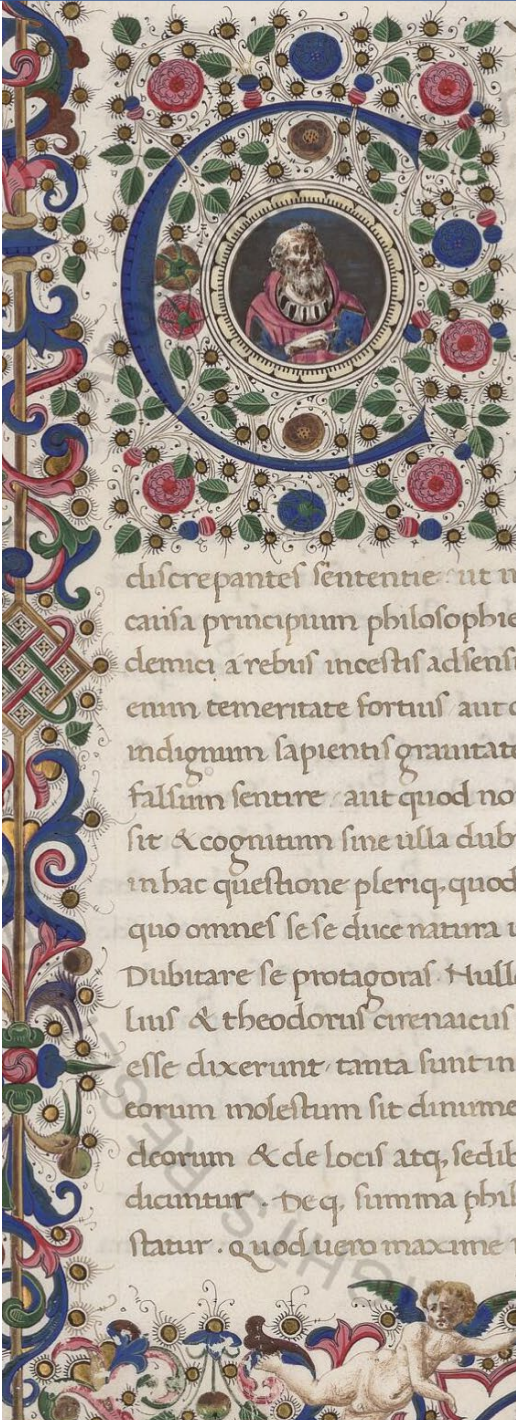 C
discrepantes sententie ut
causa principium philosophie
demici a rebus incestis adsensi
enim temeritate fortius aut
indignum sapientis grauitate
falsum sentire aut quod no
sit & cognitum sine ulla dub
in hac questione pleriq. quod
quo omnes se se duce natura
Dubitare se protagoras. Null
lius & theodorus cirenaicus
esse dixerunt tanta sunt in
eorum molestum sit dinume
deorum & de locis atq. sedib
dicuntur. De q. summa phil
statur. Quod uero maxime